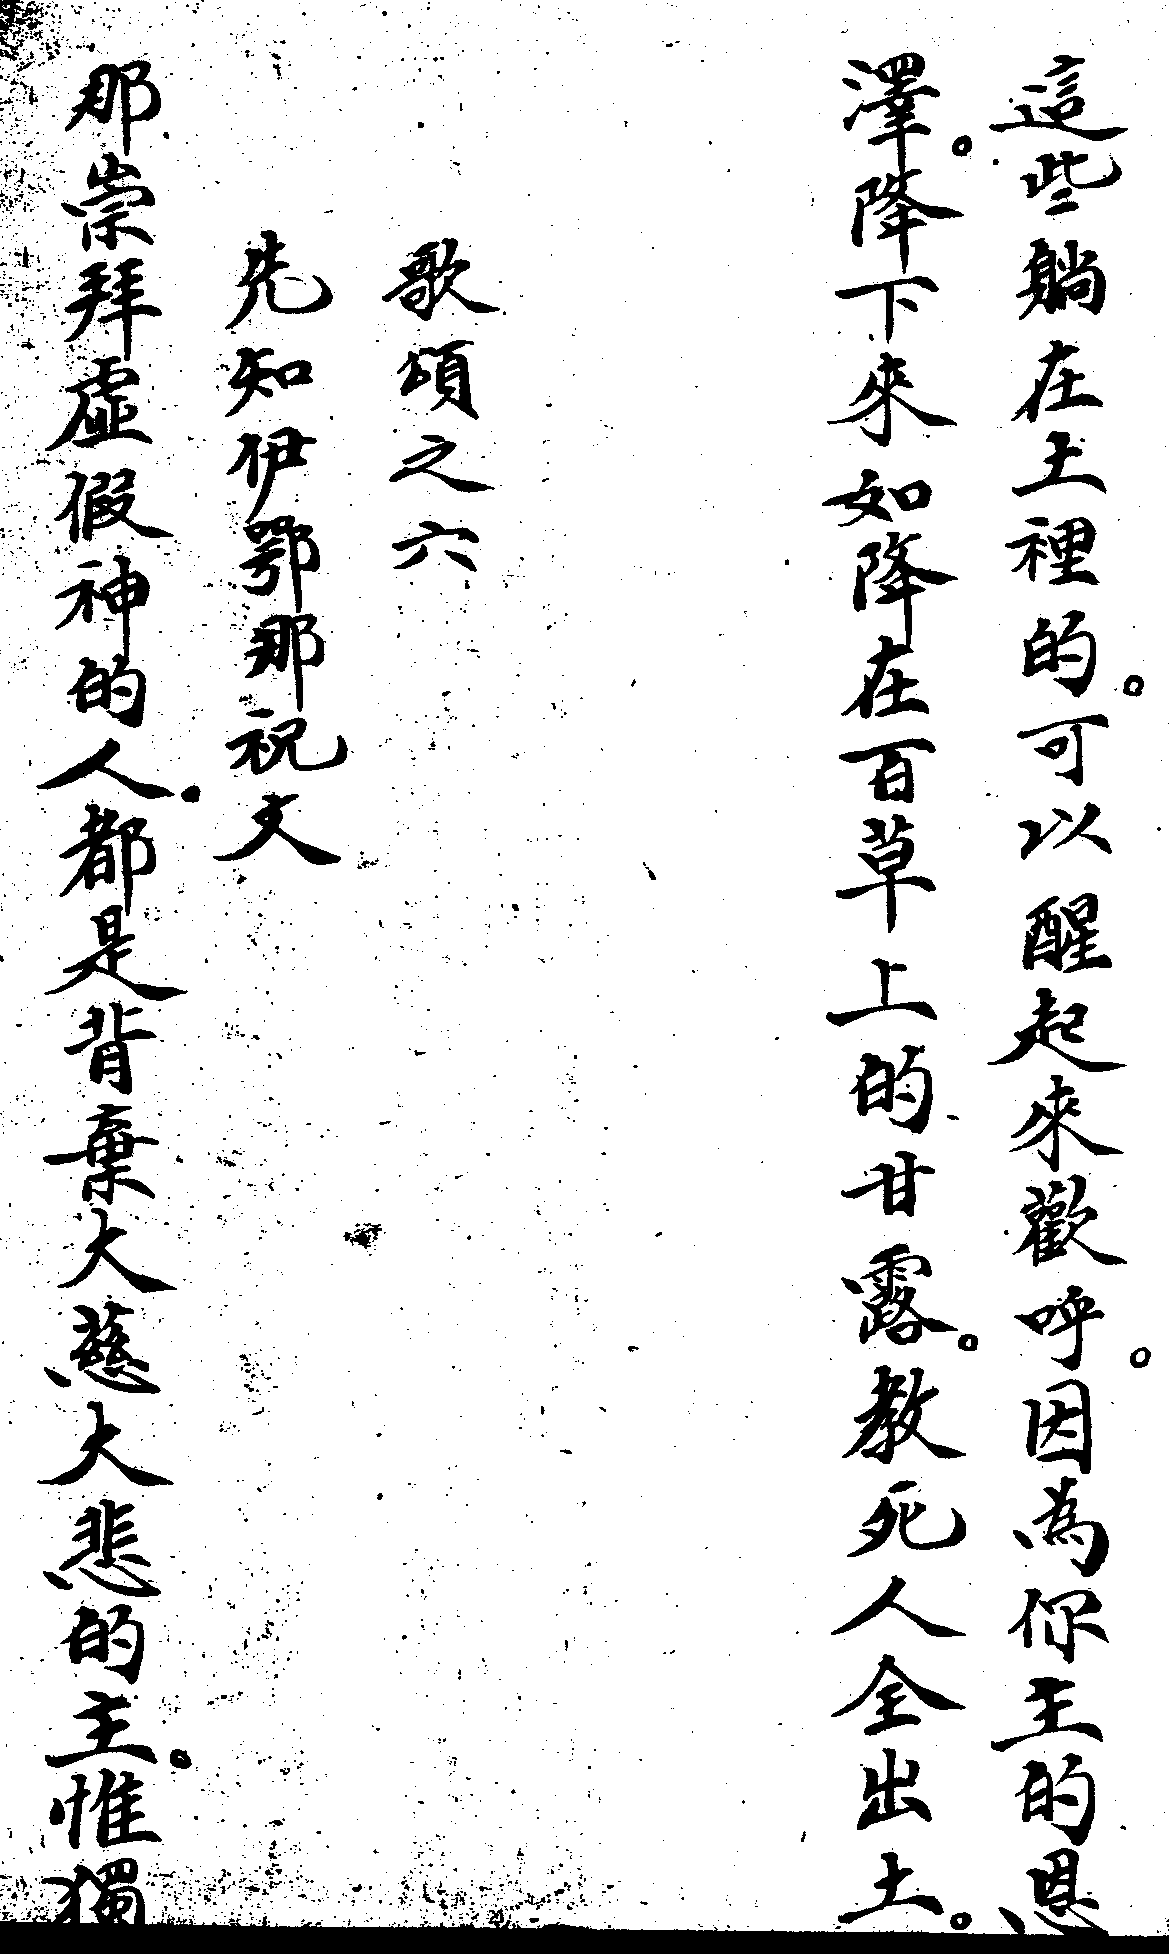 這些躺在土裡的。可以醒起來歡呼。因為你主的恩
澤。降下來如降在百草上的甘露。教死人全出土。
歌頌之六
先知伊鄂那祝文
那崇拜虛假神的人。都是背棄大慈大悲的主。惟獨